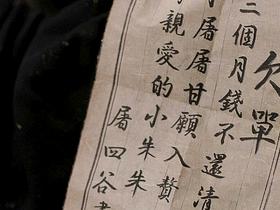 欠單
個月錢不還清
屠屠甘願入贅
親愛的小朱朱
屠四谷